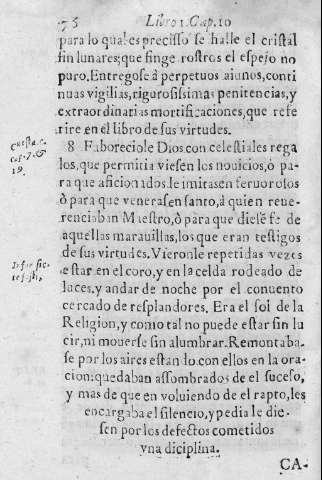 76 Libro 1. Cap. 10
para lo qual es precisso se halle el cristal
sin lunares; que finge rostros el espejo no
puro. Entregose à perpetuos aiunos, conti
nuas vigilias, rigurosissimas penitencias, y
extraordinarias mortificaciones, que refe
rire en el libro de sus virtudes.
8 Faboreciole Dios con celestiales rega
los, que permitia viesen los nouicios, ò pa-
ra que aficionados le imitasen feruorosos
ò para que venerasen santo, à quien reue-
renciaban Maestro, ò para que diese fe de
aquellas marauillas, los que eran testigos
de sus virtudes. Vieronle repetidas vezes
estar en el coro, y en la celda rodeado de
luces, y andar de noche por el conuento
cercado de resplandores. Era el sol de la
Religion, y como tal no puede estar sin lu
cir, ni mouerse sin alumbrar. Remontaba-
se por los aires estando con ellos en la ora-
cion: quedaban assombrados de el suceso,
y mas de que en voluiendo de el rapto, les
encargaba el silencio, y pedia le die-
sen por los defectos cometidos
vna diciplina.
CA-